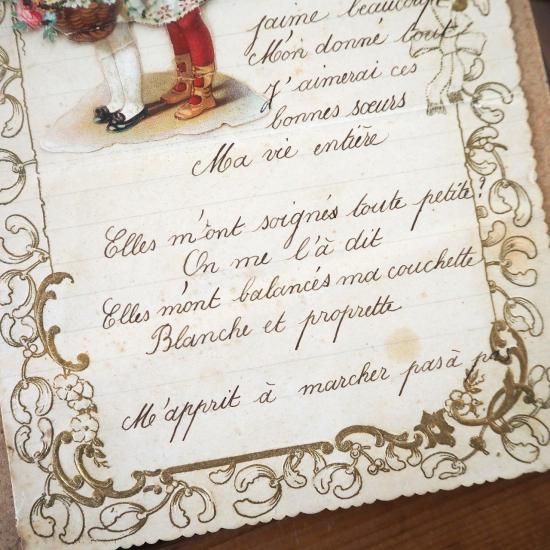 jaime beaucoup
M'on donné tout
J'aimerai ces
bonnes sœurs
Ma vie entière
Elles m'ont soignés toute petite?
On me l'à dit
Elles m'ont balancés ma couchette
Blanche et proprette
M'e'apprit à marcher pas à pas